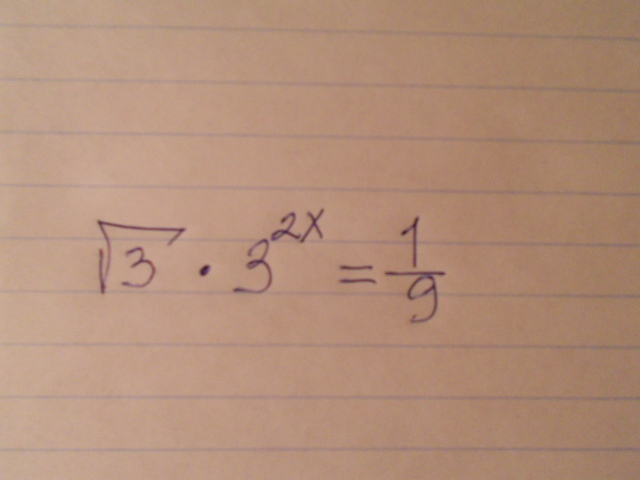 √3 · 3^{2x} = 1/9